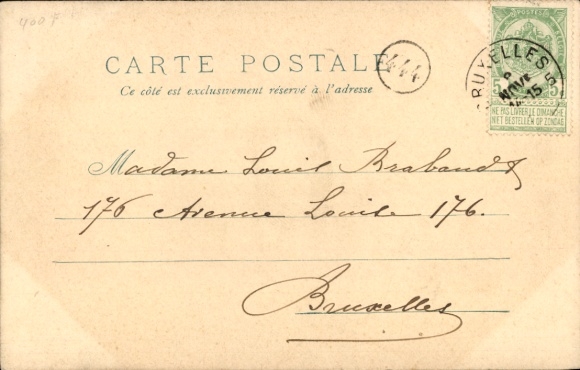 400 F
CARTE POSTALE
444
Ce côté est exclusivement réservé à l'adresse
POSTES
5 5
BRUXELLES
NOV
15 5
NE PAS LIVRER LE DIMANCHE
NIET BESTELLEN OP ZONDAG
Madame Louis Brabandt
176 Avenue Louise 176.
Bruxelles